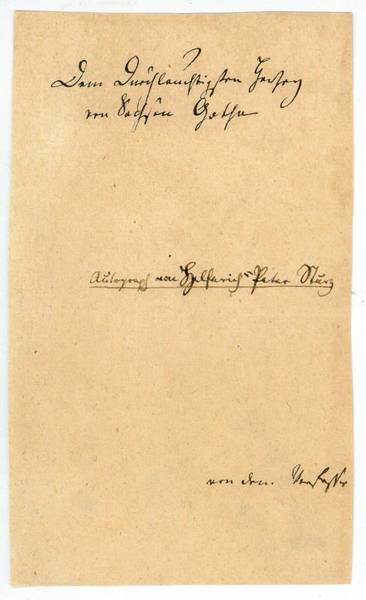 Dem Durchlauchtigsten Herzog
von Sachsen Gotha
Autograph von Helferich Peter Sturz
von dem Verfasser